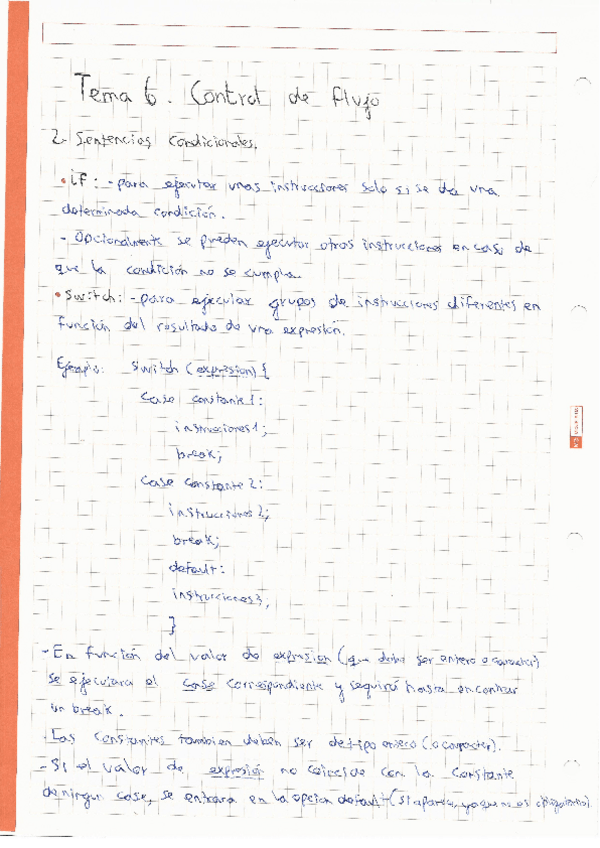 Tema 6. Control de flujo
2- Sentencias condicionales.
• if: - para ejecutar unas instrucciones solo si se da una
determinada condición.
- Opcionalmente se pueden ejecutar otras instrucciones en caso de
que la condición no se cumpla.
• switch: - para ejecutar grupos de instrucciones diferentes en
función del resultado de una expresión.
Ejemplo: switch (expresion) {
case constante1:
instrucciones1;
break;
case constante2:
instrucciones2;
break;
default:
instrucciones3;
}
- En función del valor de expresion (que debe ser entero o caracter)
se ejecutara el case correspondiente y seguirá hasta encontrar
un break.
- Las constantes tambien deben ser de tipo entero (o caracter).
- Si el valor de expresión no coincide con la constante
de ningun case, se entrara en la opcion default (si aparece, ya que no es obligatorio).